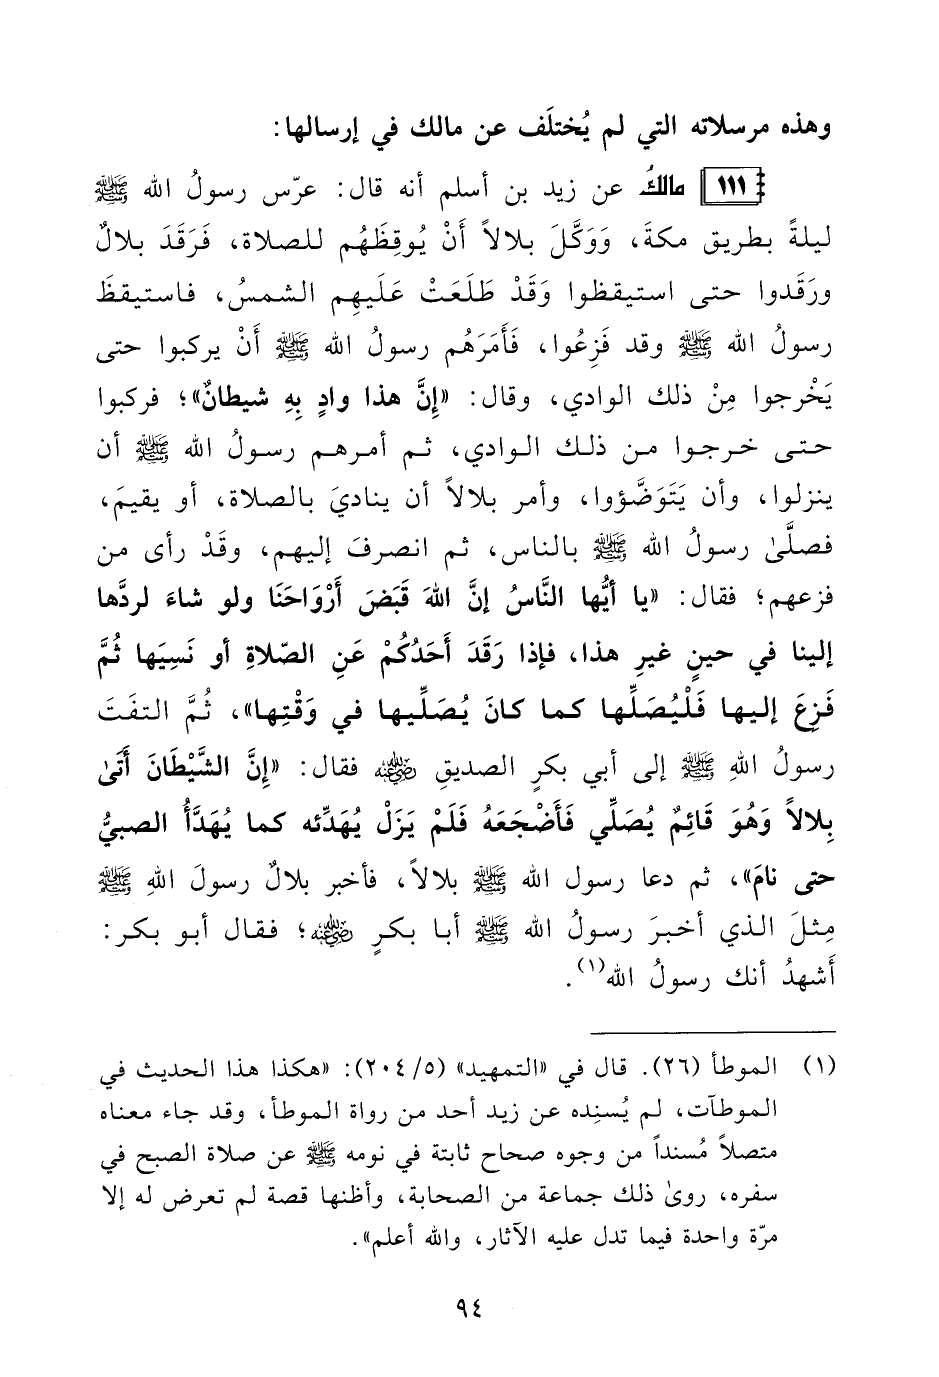 وهذه مرسلاته التي لم يُختلَف عن مالك في إرسالها:
١١١ مالكُ عن زيد بن أسلم أنه قال: عرّس رسولُ الله ﷺ
ليلةً بطريق مكةَ، وَوَكَّلَ بلالاً أَنْ يُوقِظَهُم للصلاة، فَرَقَدَ بلالٌ
ورَقَدوا حتى استيقظوا وَقَدْ طَلَعَتْ عَلَيهِم الشمسُ، فاستيقظَ
رسولُ الله ﷺ وقد فَزِعُوا، فَأَمَرَهُم رسولُ الله ﷺ أَنْ يركبوا حتى
يَخْرجوا مِنْ ذلك الوادي، وقال: «إِنَّ هذا وادٍ بِهِ شيطانٌ»؛ فركبوا
حتى خرجوا من ذلك الوادي، ثم أمرهم رسولُ الله ﷺ أن
ينزلوا، وأن يَتَوَضَّؤوا، وأمر بلالاً أن يناديَ بالصلاة، أو يقيمَ،
فصلَّىٰ رسولُ الله ﷺ بالناس، ثم انصرفَ إليهم، وقَدْ رأى من
فزعهم؛ فقال: «يا أيُّها النَّاسُ إنَّ اللهَ قَبَضَ أَرْوَاحَنَا ولو شاءَ لردَّها
إلينا في حينٍ غيرِ هذا، فإذا رَقَدَ أَحَدُكُمْ عَنِ الصّلاةِ أو نَسِيَها ثُمَّ
فَزِعَ إليها فَلْيُصَلِّها كما كانَ يُصَلِّيها في وَقْتِها»، ثُمَّ التفَتَ
رسولُ اللهِ ﷺ إلى أبي بكرٍ الصديقِ رضي الله عنه فقال: «إِنَّ الشَّيْطَانَ أَتَىٰ
بِلالاً وَهُوَ قَائِمٌ يُصَلِّي فَأَضْجَعَهُ فَلَمْ يَزَلْ يُهَدِّئه كما يُهَدَّأُ الصبيُّ
حتى نامَ»، ثم دعا رسول الله ﷺ بلالاً، فأخبر بلالٌ رسولَ اللهِ ﷺ
مِثلَ الذي أخبرَ رسولُ الله ﷺ أبا بكرٍ رضي الله عنه؛ فقال أبو بكر:
أَشهدُ أنك رسولُ الله(١).
(١) الموطأ (٢٦). قال في «التمهيد» (٢٠٤/٥): «هكذا هذا الحديث في
الموطآت، لم يُسنِده عن زيد أحد من رواة الموطأ، وقد جاء معناه
متصلاً مُسنداً من وجوه صحاح ثابتة في نومه ﷺ عن صلاة الصبح في
سفره، روىٰ ذلك جماعة من الصحابة، وأظنها قصة لم تعرض له إلا
مرّة واحدة فيما تدل عليه الآثار، والله أعلم».
٩٤